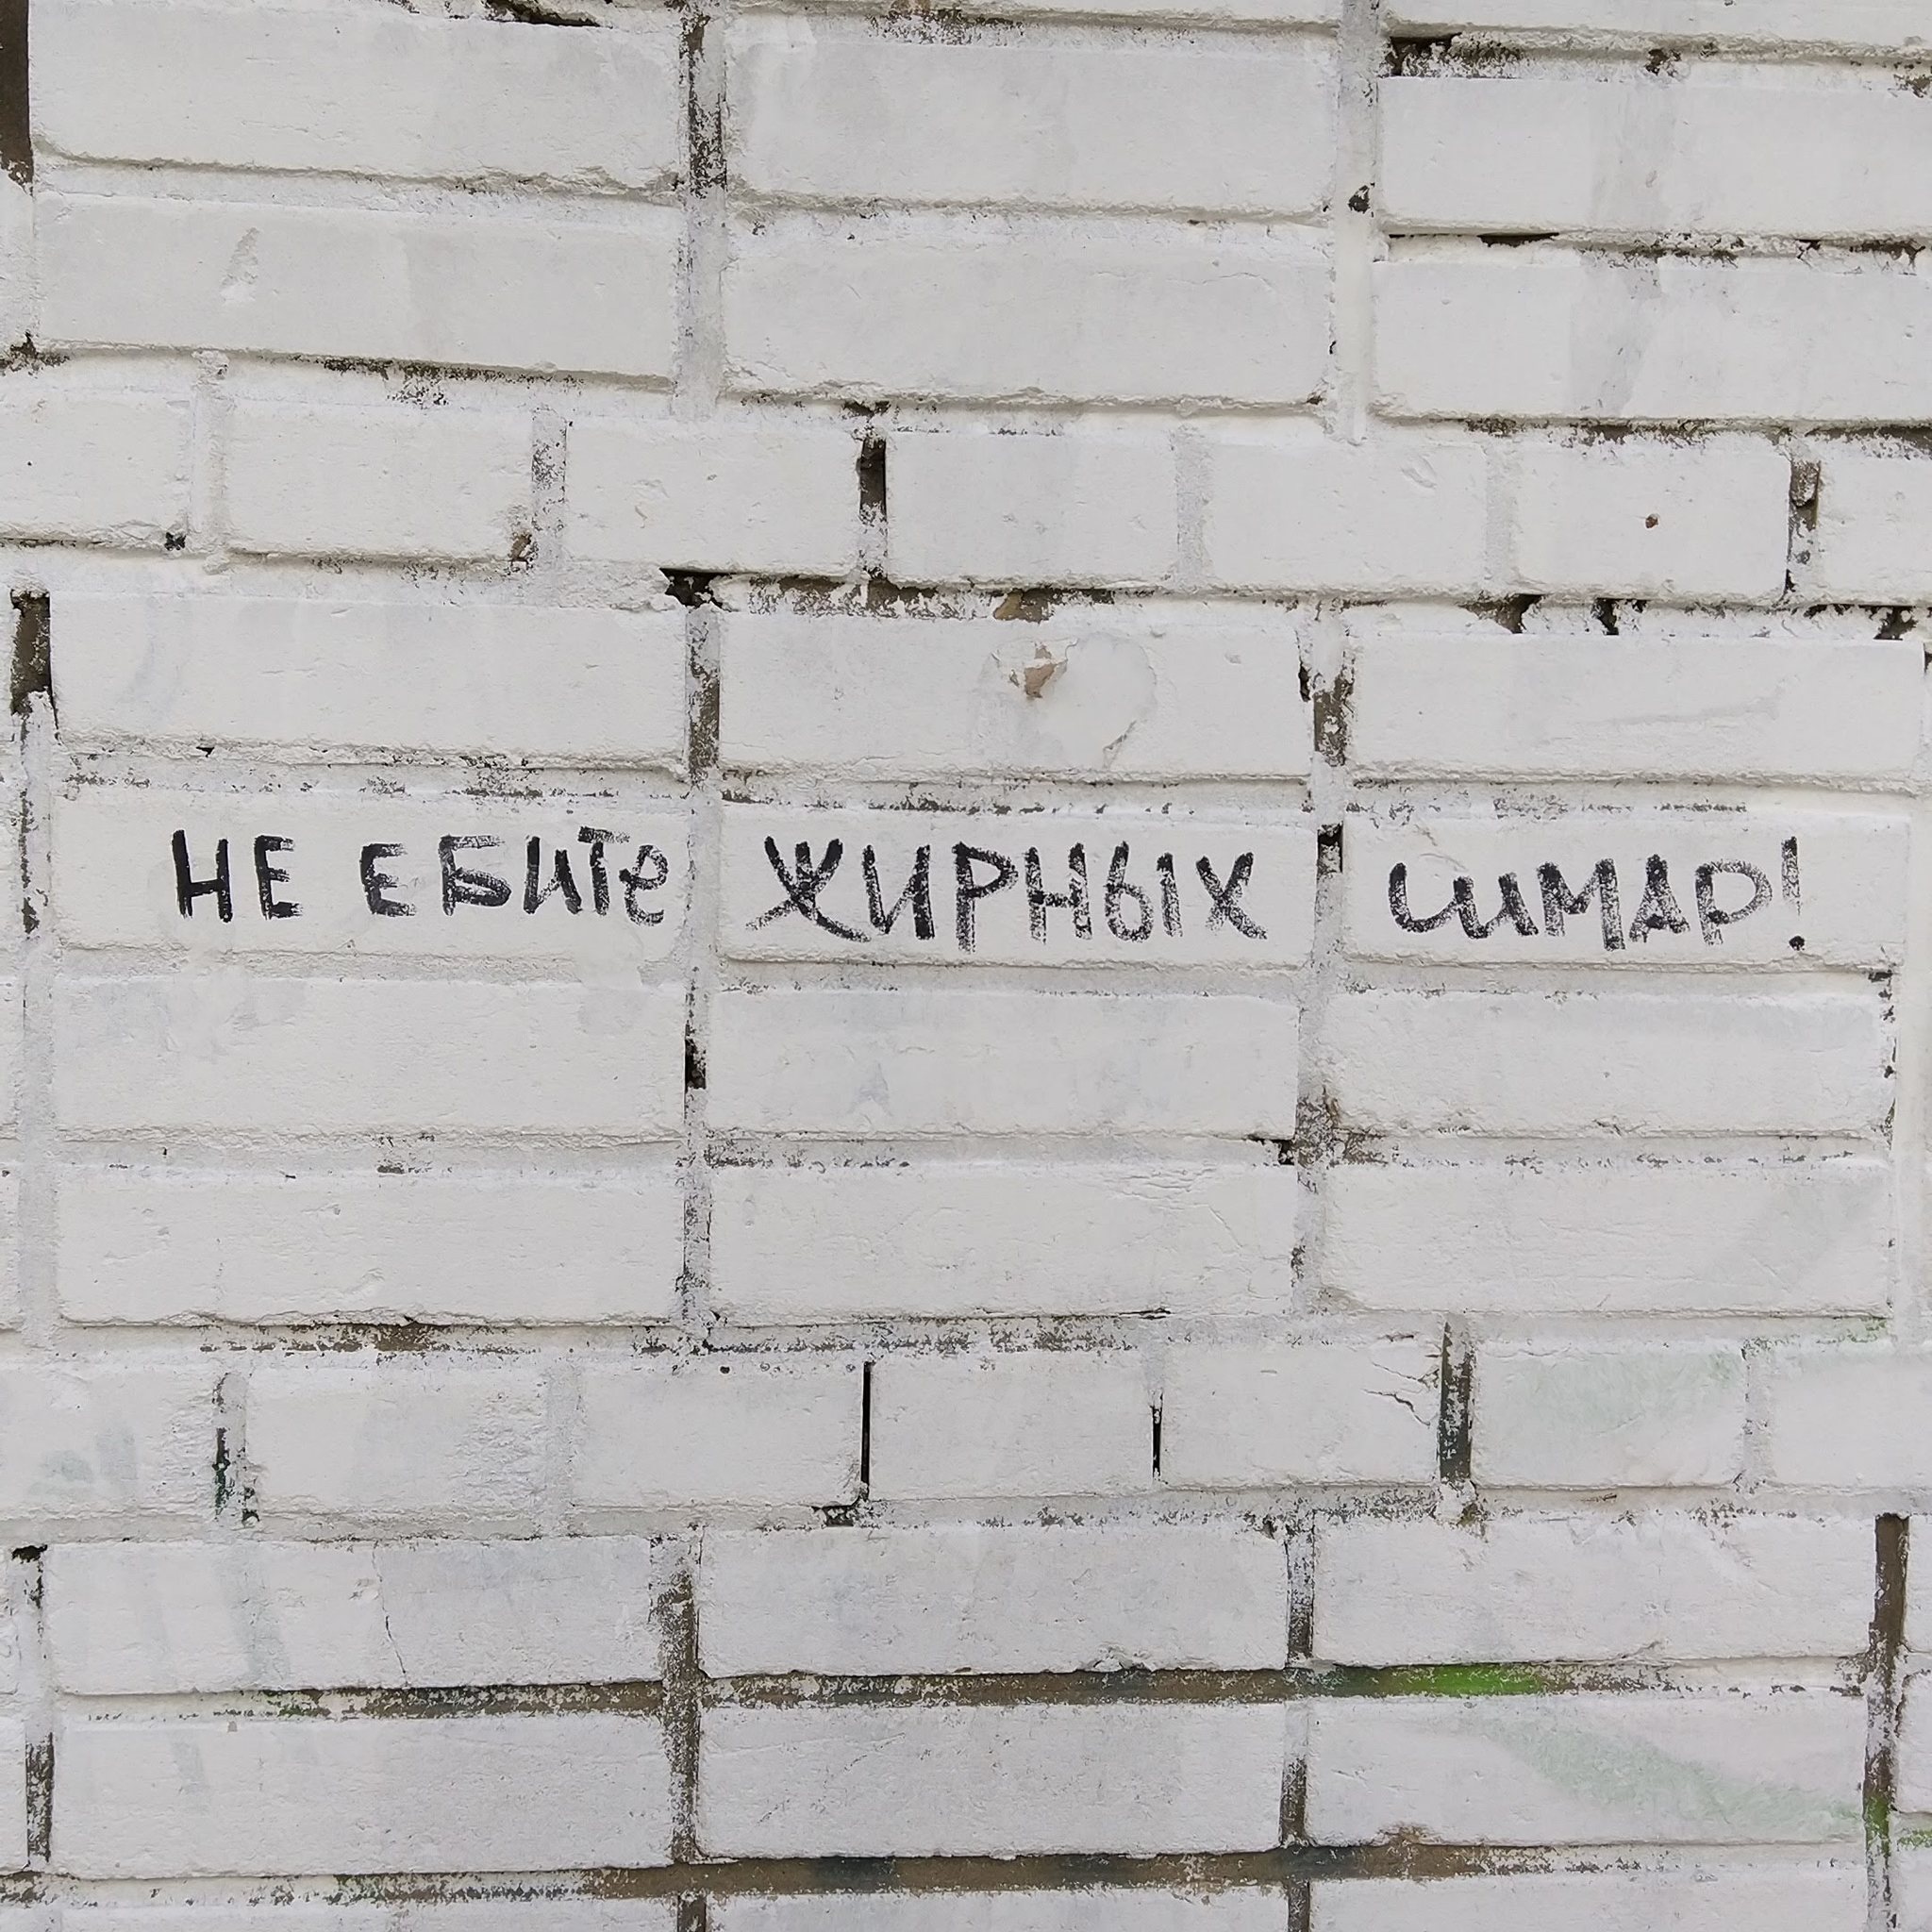 НЕ ЕБИТе ЖИРНЫХ СИМАР!